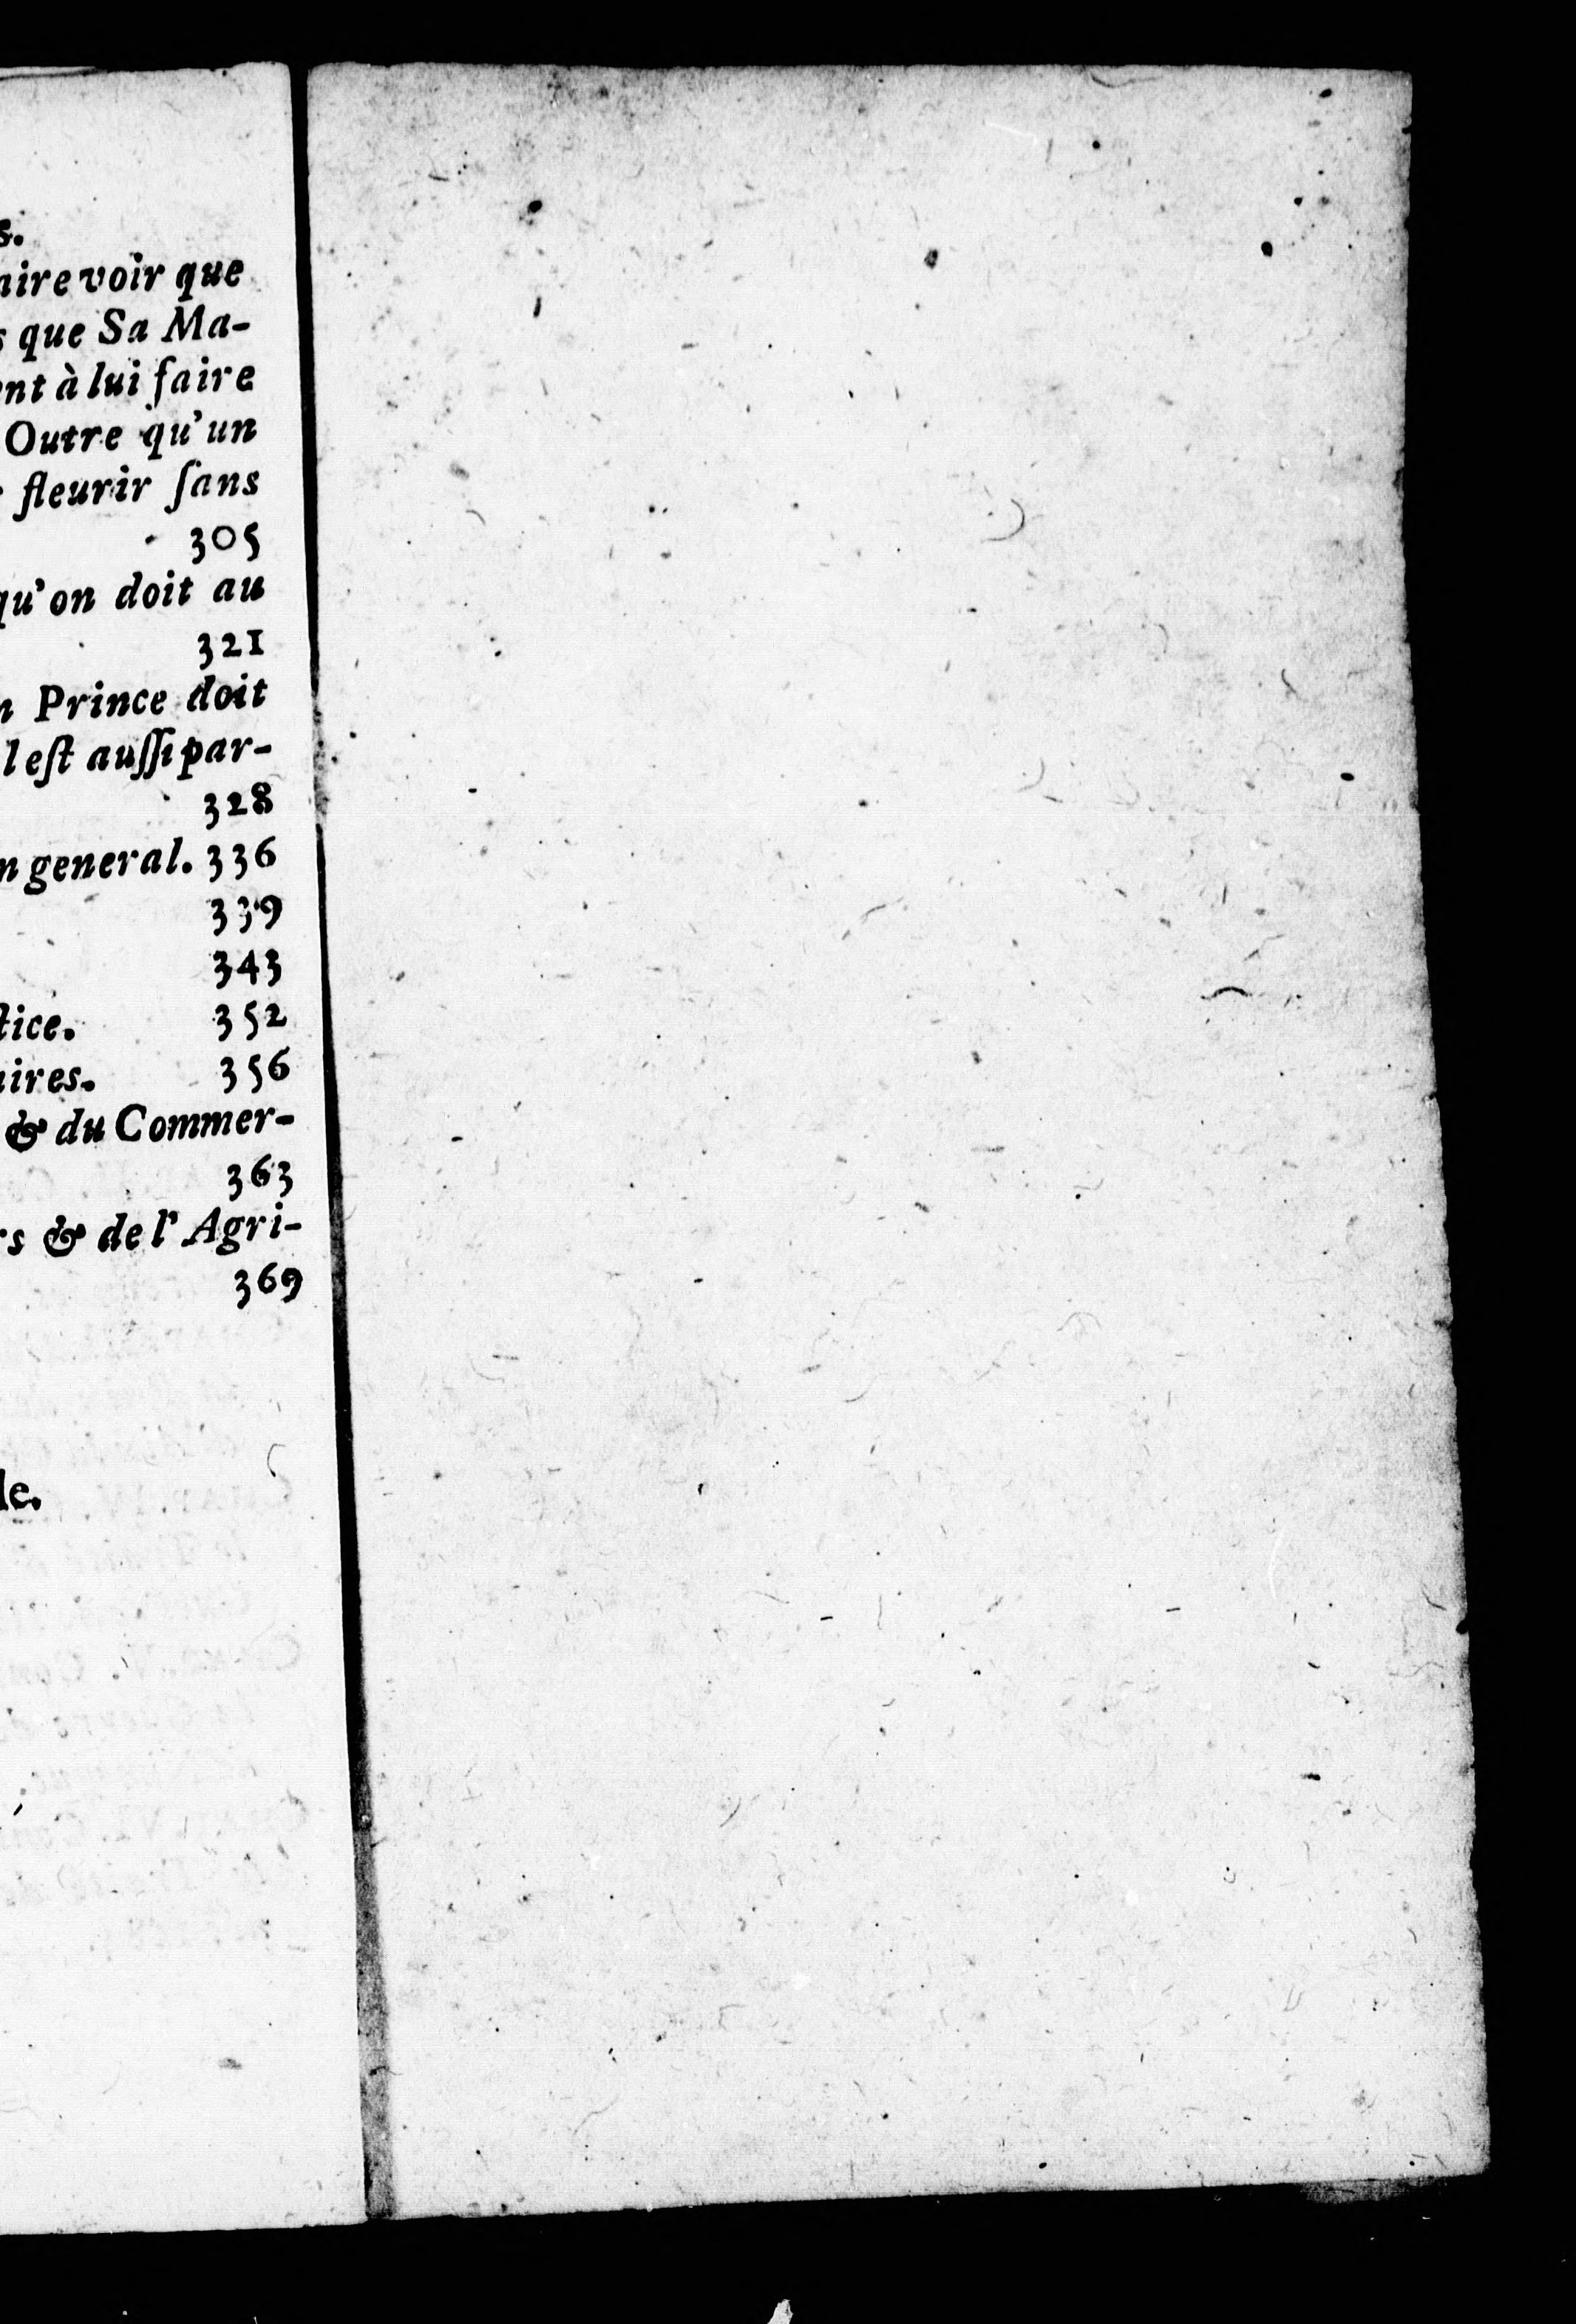 s.
aire voir que
s que Sa Ma-
ent à lui ſaire
Outre qu'un
r fleurir ſans
305
qu'on doit au
321
n Prince doit
l eſt auſſi par-
328
n general. 336
339
343
ſtice. 352
aires. 356
& du Commer-
363
rs & de l' Agri-
369
le.